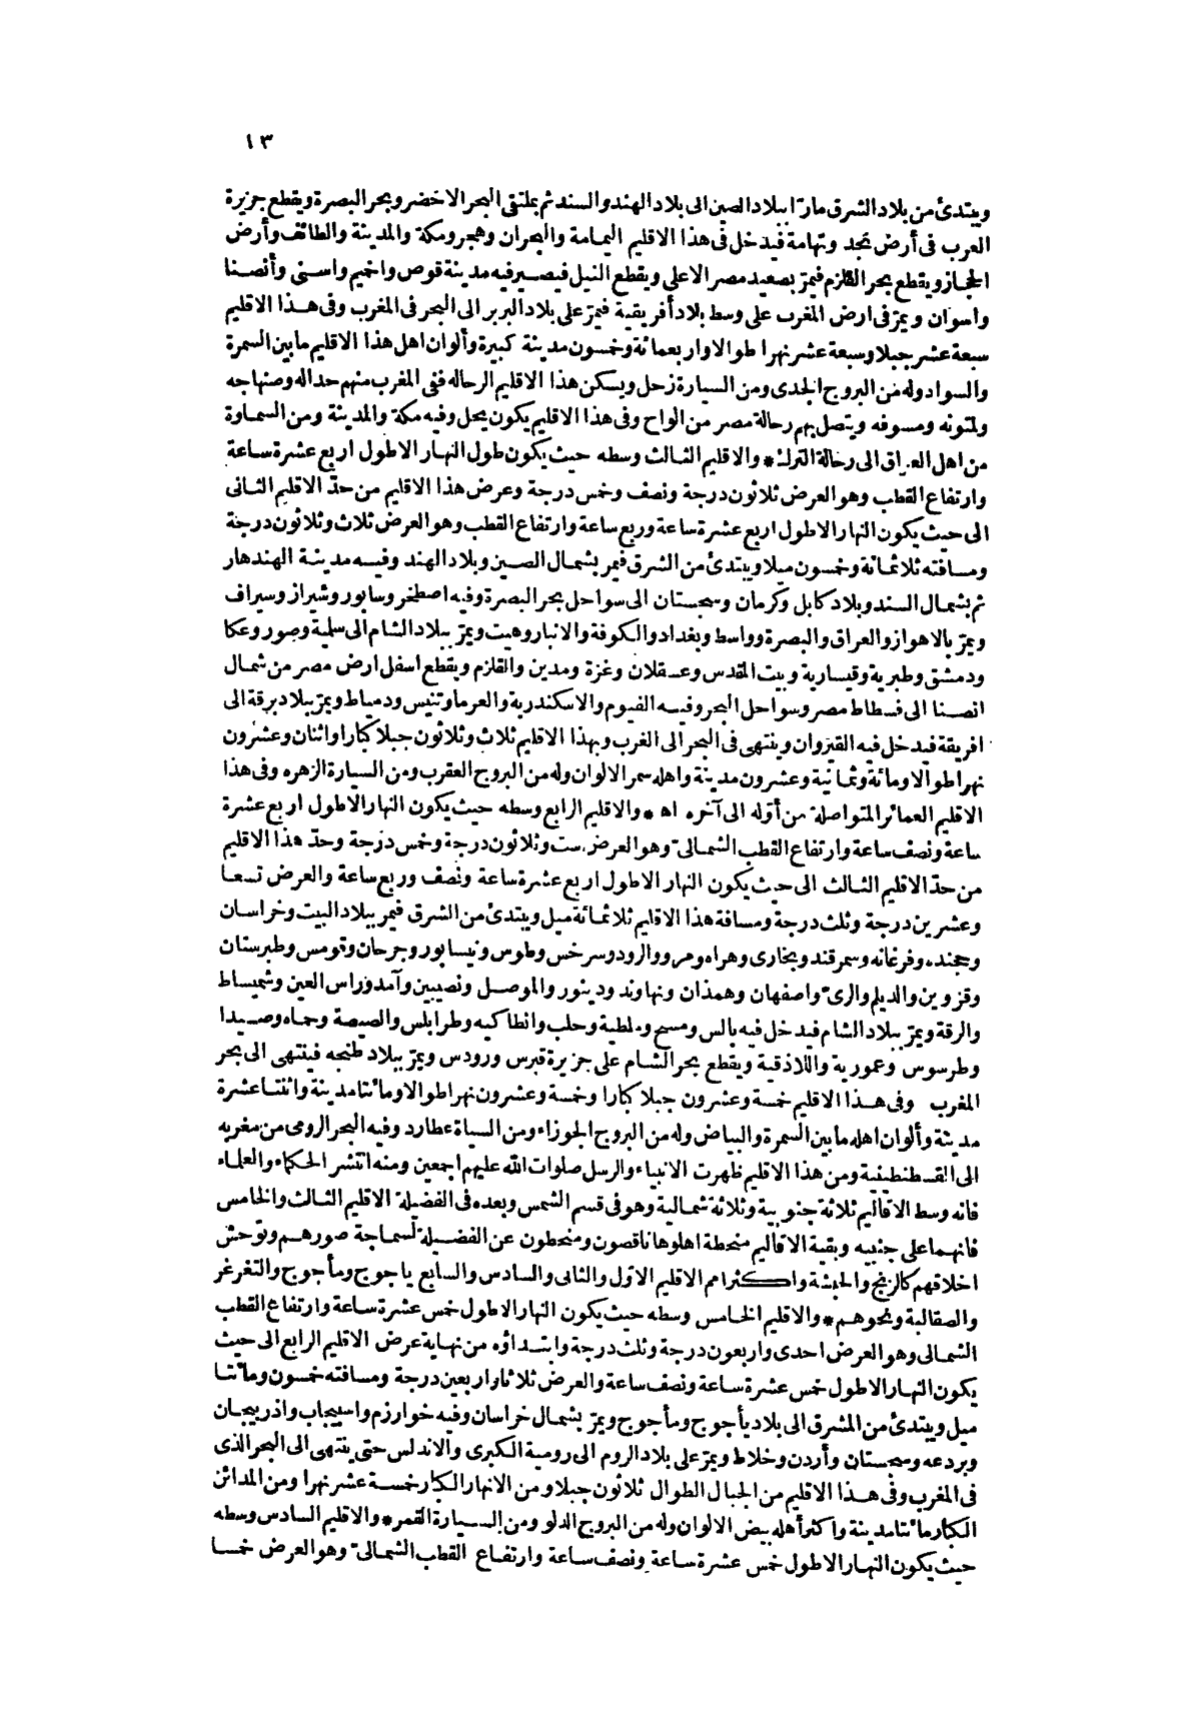 ١٣
ويبتدئ من بلاد الشرق مارّا ببلاد الصين الى بلاد الهند والسند ثم بملتقى البحر الاخضر وبحر البصرة ويقطع جزيرة
العرب فى أرض نجد وتهامة فيدخل فى هذا الاقليم اليمامة والبحران وهجر ومكة والمدينة والطائف وأرض
الحجاز ويقطع بحر القلزم فيمرّ بصعيد مصر الاعلى ويقطع النيل فيصير فيه مدينة قوص واخميم واسنى وأنصنا
واسوان ويمرّ فى ارض المغرب على وسط بلاد أفريقية فيمرّ على بلاد البربر الى البحر فى المغرب وفى هذا الاقليم
سبعة عشر جبلا وسبعة عشر نهرا طوالا واربعمائة وخمسون مدينة كبيرة وألوان اهل هذا الاقليم ما بين السمرة
والسواد وله من البروج الجدى ومن السيارة زحل ويسكن هذا الاقليم الرحاله ففى المغرب منهم حداله وصنهاجه
ولمتونه ومسوفه ويتصل بهم رحالة مصر من الواح وفى هذا الاقليم يكون يحل وفيه مكة والمدينة ومن السماوة
من اهل العراق الى رحالة الترك * والاقليم الثالث وسطه حيث يكون طول النهار الاطول اربع عشرة ساعة
وارتفاع القطب وهو العرض ثلاثون درجة ونصف وخمس درجة وعرض هذا الاقليم من حدّ الاقليم الثانى
الى حيث يكون النهار الاطول اربع عشرة ساعة وربع ساعة وارتفاع القطب وهو العرض ثلاث وثلاثون درجة
ومسافته ثلاثمائة وخمسون ميلا ويبتدئ من الشرق فيمر بشمال الصين وبلاد الهند وفيه مدينة الهندهار
ثم بشمال السند وبلاد كابل وكرمان وسجستان الى سواحل بحر البصرة وفيه اصطخر وسابور وشيراز وسيراف
ويمرّ بالاهواز والعراق والبصرة وواسط وبغداد والكوفة والانبار وهيت ويمرّ ببلاد الشام الى سلمية وصور وعكا
ودمشق وطبرية وقيسارية وبيت المقدس وعسقلان وغزة ومدين والقلزم ويقطع اسفل ارض مصر من شمال
انصنا الى فسطاط مصر وسواحل البحر وفيه الفيوم والاسكندرية والعرما وتنيس ودمياط ويمرّ ببلاد برقة الى
افريقة فيدخل فيه القيروان وينتهى فى البحر الى الغرب وبهذا الاقليم ثلاث وثلاثون جبلا كبارا واثنان وعشرون
نهرا طوالا ومائة وثمانية وعشرون مدينة واهله سمر الالوان وله من البروج العقرب ومن السيارة الزهره وفى هذا
الاقليم العمائر المتواصلة من أوله الى آخره اه * والاقليم الرابع وسطه حيث يكون النهار الاطول اربع عشرة
ساعة ونصف ساعة وارتفاع القطب الشمالىّ وهو العرض ست وثلاثون درجة وخمس درجة وحدّ هذا الاقليم
من حدّ الاقليم الثالث الى حيث يكون النهار الاطول اربع عشرة ساعة ونصف وربع ساعة والعرض تسعا
وعشرين درجة وثلث درجة ومسافة هذا الاقليم ثلاثمائة ميل ويبتدئ من الشرق فيمر ببلاد البيت وخراسان
وخجنده وفرغانه وسمرقند وبخارى وهراه ومرو والرود وسرخس وطوس ونيسابور وجرجان وقومس وطبرستان
وقزوين والديلم والرىّ واصفهان وهمذان ونهاوند ودينور والموصل ونصيبين وآمد وراس العين وشميساط
والرقة ويمرّ ببلاد الشام فيدخل فيه بالس ومسح وملطية وحلب وانطاكيه وطرابلس والصيصة وحماه وصيدا
وطرسوس وعمورية واللاذقية ويقطع بحر الشام على جزيرة قبرس ورودس ويمرّ ببلاد طنجه فينتهى الى بحر
المغرب وفى هذا الاقليم خمسة وعشرون جبلا كبارا وخمسة وعشرون نهرا طوالا ومائتا مدينة واثنتا عشرة
مدينة وألوان اهله ما بين السمرة والبياض وله من البروج الجوزاء ومن السياة عطارد وفيه البحر الرومى من مغربه
الى القسطنطينية ومن هذا الاقليم ظهرت الانبياء والرسل صلوات الله عليهم اجمعين ومنه انتشر الحكماء والعلماء
فانه وسط الاقاليم ثلاثة جنوبية وثلاثة شمالية وهو فى قسم الشمس وبعده فى الفضيلة الاقليم الثالث والخامس
فانهما على جنبيه وبقية الاقاليم منحطة اهلوها ناقصون ومنحطون عن الفضيلة لسماجة صورهم وتوحش
اخلاقهم كالزنج والحبشة واكثر امم الاقليم الاوّل والثانى والسادس والسابع ياجوج ومأجوج والتغرغر
والصقالبة ونحوهم * والاقليم الخامس وسطه حيث يكون النهار الاطول خمس عشرة ساعة وارتفاع القطب
الشمالى وهو العرض احدى واربعون درجة وثلث درجة وابتداؤه من نهاية عرض الاقليم الرابع الى حيث
يكون النهار الاطول خمس عشرة ساعة ونصف ساعة والعرض ثلاثا واربعين درجة ومسافته خمسون ومائتا
ميل ويبتدئ من المشرق الى بلاد يأجوج ومأجوج ويمرّ بشمال خراسان وفيه خوارزم واسبيجاب واذربيجان
وبردعه وسجستان وأردن وخلاط ويمرّ على بلاد الروم الى رومية الكبرى والاندلس حتى ينتهى الى البحر الذى
فى المغرب وفى هذا الاقليم من الجبال الطوال ثلاثون جبلا ومن الانهار الكبار خمسة عشر نهرا ومن المدائن
الكبار مائتا مدينة واكثر أهله بيض الالوان وله من البروج الدلو ومن السيارة القمر * والاقليم السادس وسطه
حيث يكون النهار الاطول خمس عشرة ساعة ونصف ساعة وارتفاع القطب الشمالىّ وهو العرض خمسا